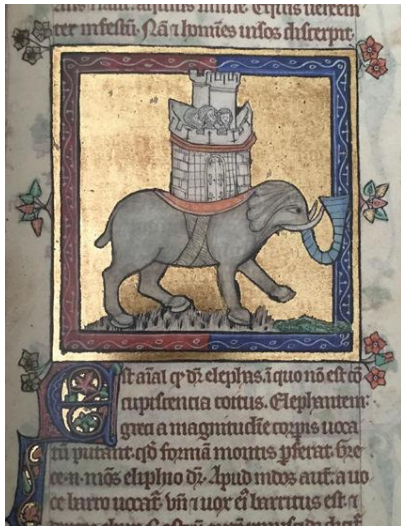 Equis uehem
ter infestũ. Nã ⁊ homĩes uisos discerpit.
Est aĩal qđ dr̃ elephas. ĩ quo nõ est cõ
cupiscentia coitus. Elephantem
greci a magnitudĩe corpis uoca
tũ putant. qđ formã montis pferat. Gre
ce .n. mõs eliphio dr̃. Apud indos aut̃. a uo
ce barro uocat̃. vñ ⁊ uox ei barritus est ⁊